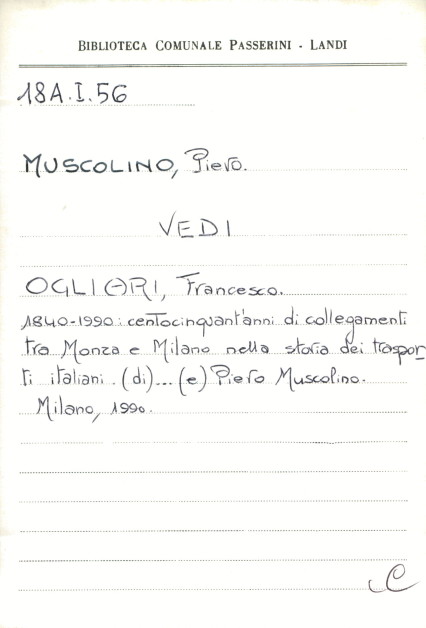 BIBLIOTECA COMUNALE PASSERINI - LANDI
18A.I.56
MUSCOLINO, Piero.
VEDI
OGLIARI, Francesco.
1840-1990: centocinquant'anni di collegamenti
tra Monza e Milano nella storia dei traspor-
ti italiani. (di)... (e) Piero Muscolino.
Milano, 1990.
C